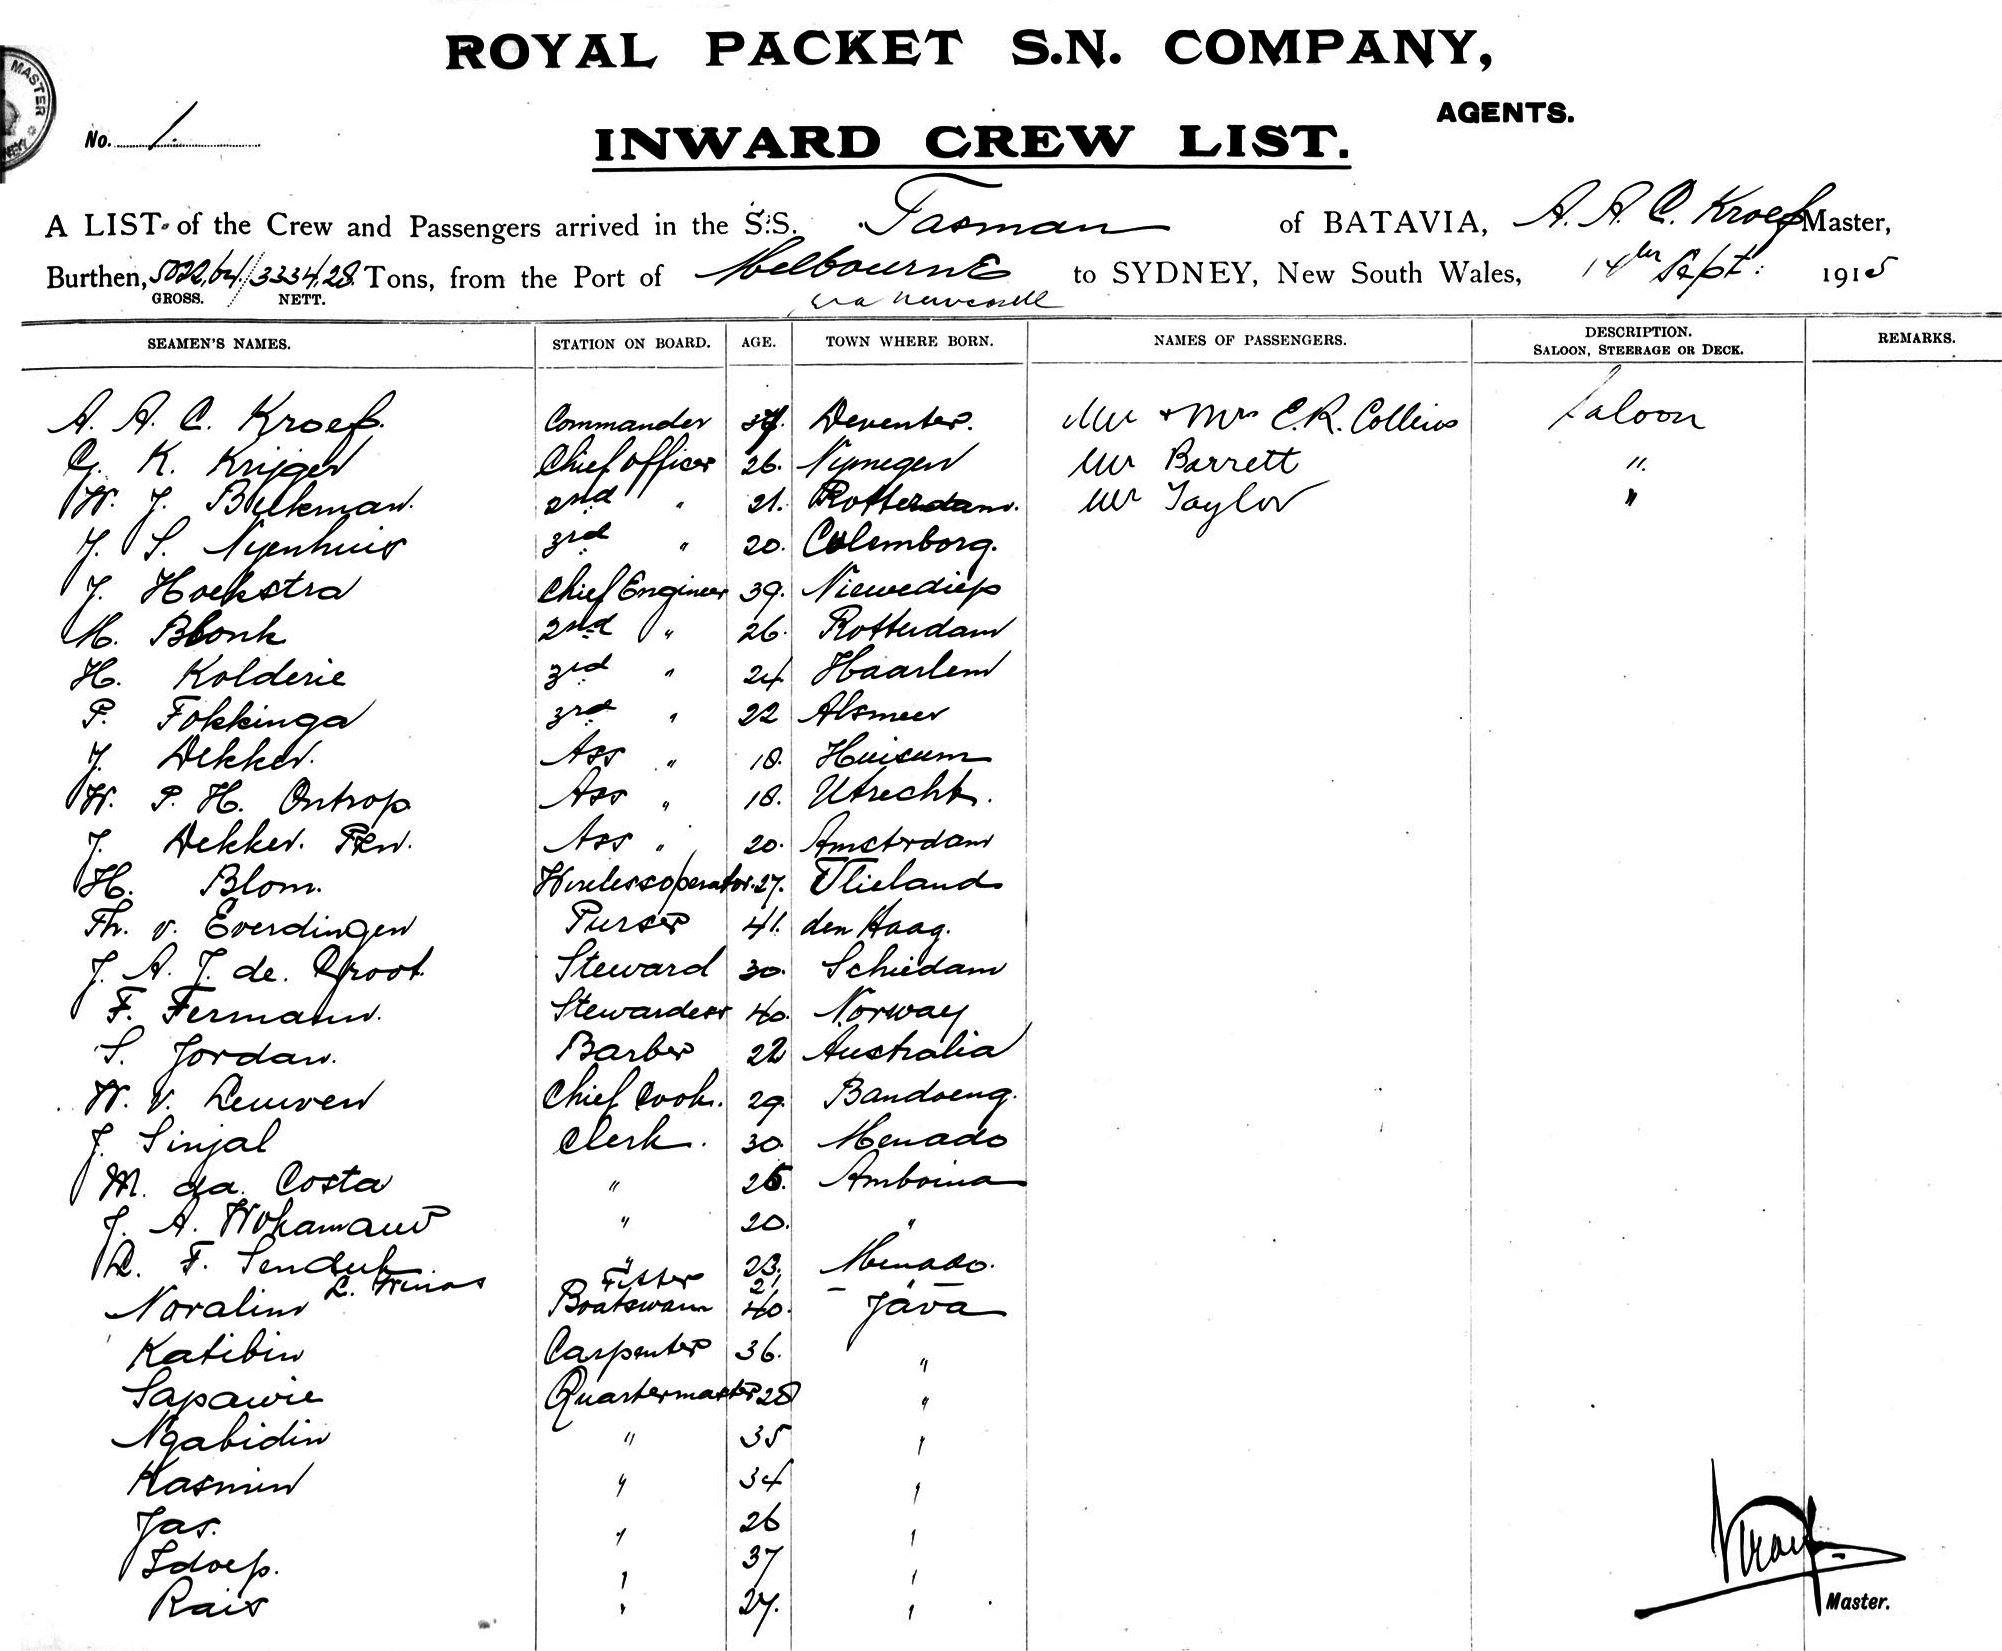 ROYAL PACKET S.N. COMPANY,
AGENTS.
MASTER
No. 1.
INWARD CREW LIST.
A LIST of the Crew and Passengers arrived in the S.S. Tasman of BATAVIA, A. A. C. Kroef Master,
Burthen, 5022,64/3334,28 Tons, from the Port of Melbourne to SYDNEY, New South Wales, 14th Sept: 1915
GROSS. NETT. via
SEAMEN'S NAMES. STATION ON BOARD. AGE. TOWN WHERE BORN. NAMES OF PASSENGERS. DESCRIPTION. SALOON, STEERAGE OR DECK. REMARKS.
A. A. C. Kroef. Commander Deventer. Mr + Mrs E.R. Collins Saloon
G. K. Krijger Chief officer 26. Nijmegen Mr Barrett "
W. J. Bulkman. 2nd " 21. Rotterdam. Mr Taylor "
J. S. Nijenhuis 3rd " 20. Culemborg.
J. Hoekstra Chief Engineer 39. Niewediep
M. Blonk 2nd " 26. Rotterdam
H. Kolderie 3rd " 24 Haarlem
P. Fokkinga 3rd " 22 Alsmeer
J. Dekker. Ass " 18. Huisum
W. P. H. Ontrop Ass " 18. Utrecht.
J. Dekker. Pzn. Ass " 20. Amsterdam
H. Blom. Wirelessoperator. 27. Vlieland
Th. v. Everdingen Purser 41. den Haag.
J. A. J. de. Groot Steward 30. Schiedam
F. Fermann. Stewardess 40. Norway
S. Jordan. Barber 22 Australia
W. v. Leuwen Chief Cook. 29. Bandoeng.
J. Sinjal Clerk. 30. Menado
M. da. Costa " 26. Amboina
J. A. " 20. "
F. Senduk " 23. Menado.
L. Fitter 21 "
Noralim Boatswain 40. Java
Katibin Carpenter 36. "
Sapawie Quartermaster 28 "
Ngabidin " 35 "
Kasmin " 34 "
Jas. " 26 "
Idoep. " 37 "
Rais " 27. "
Kroef
Master.